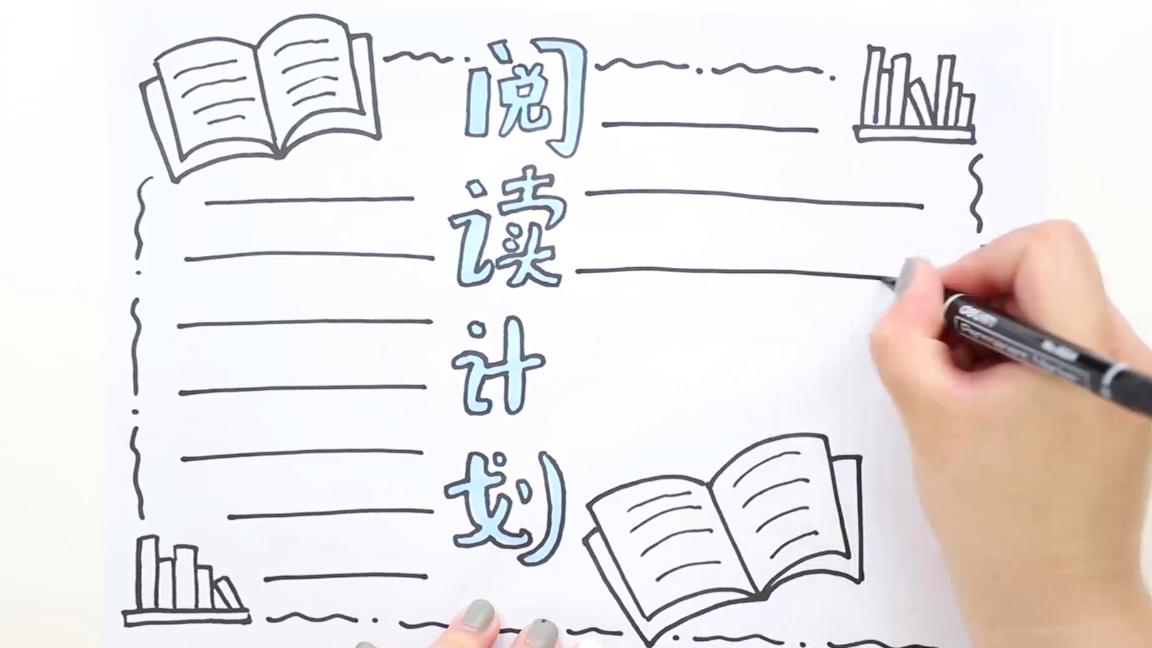 阅
读
计
划
deli